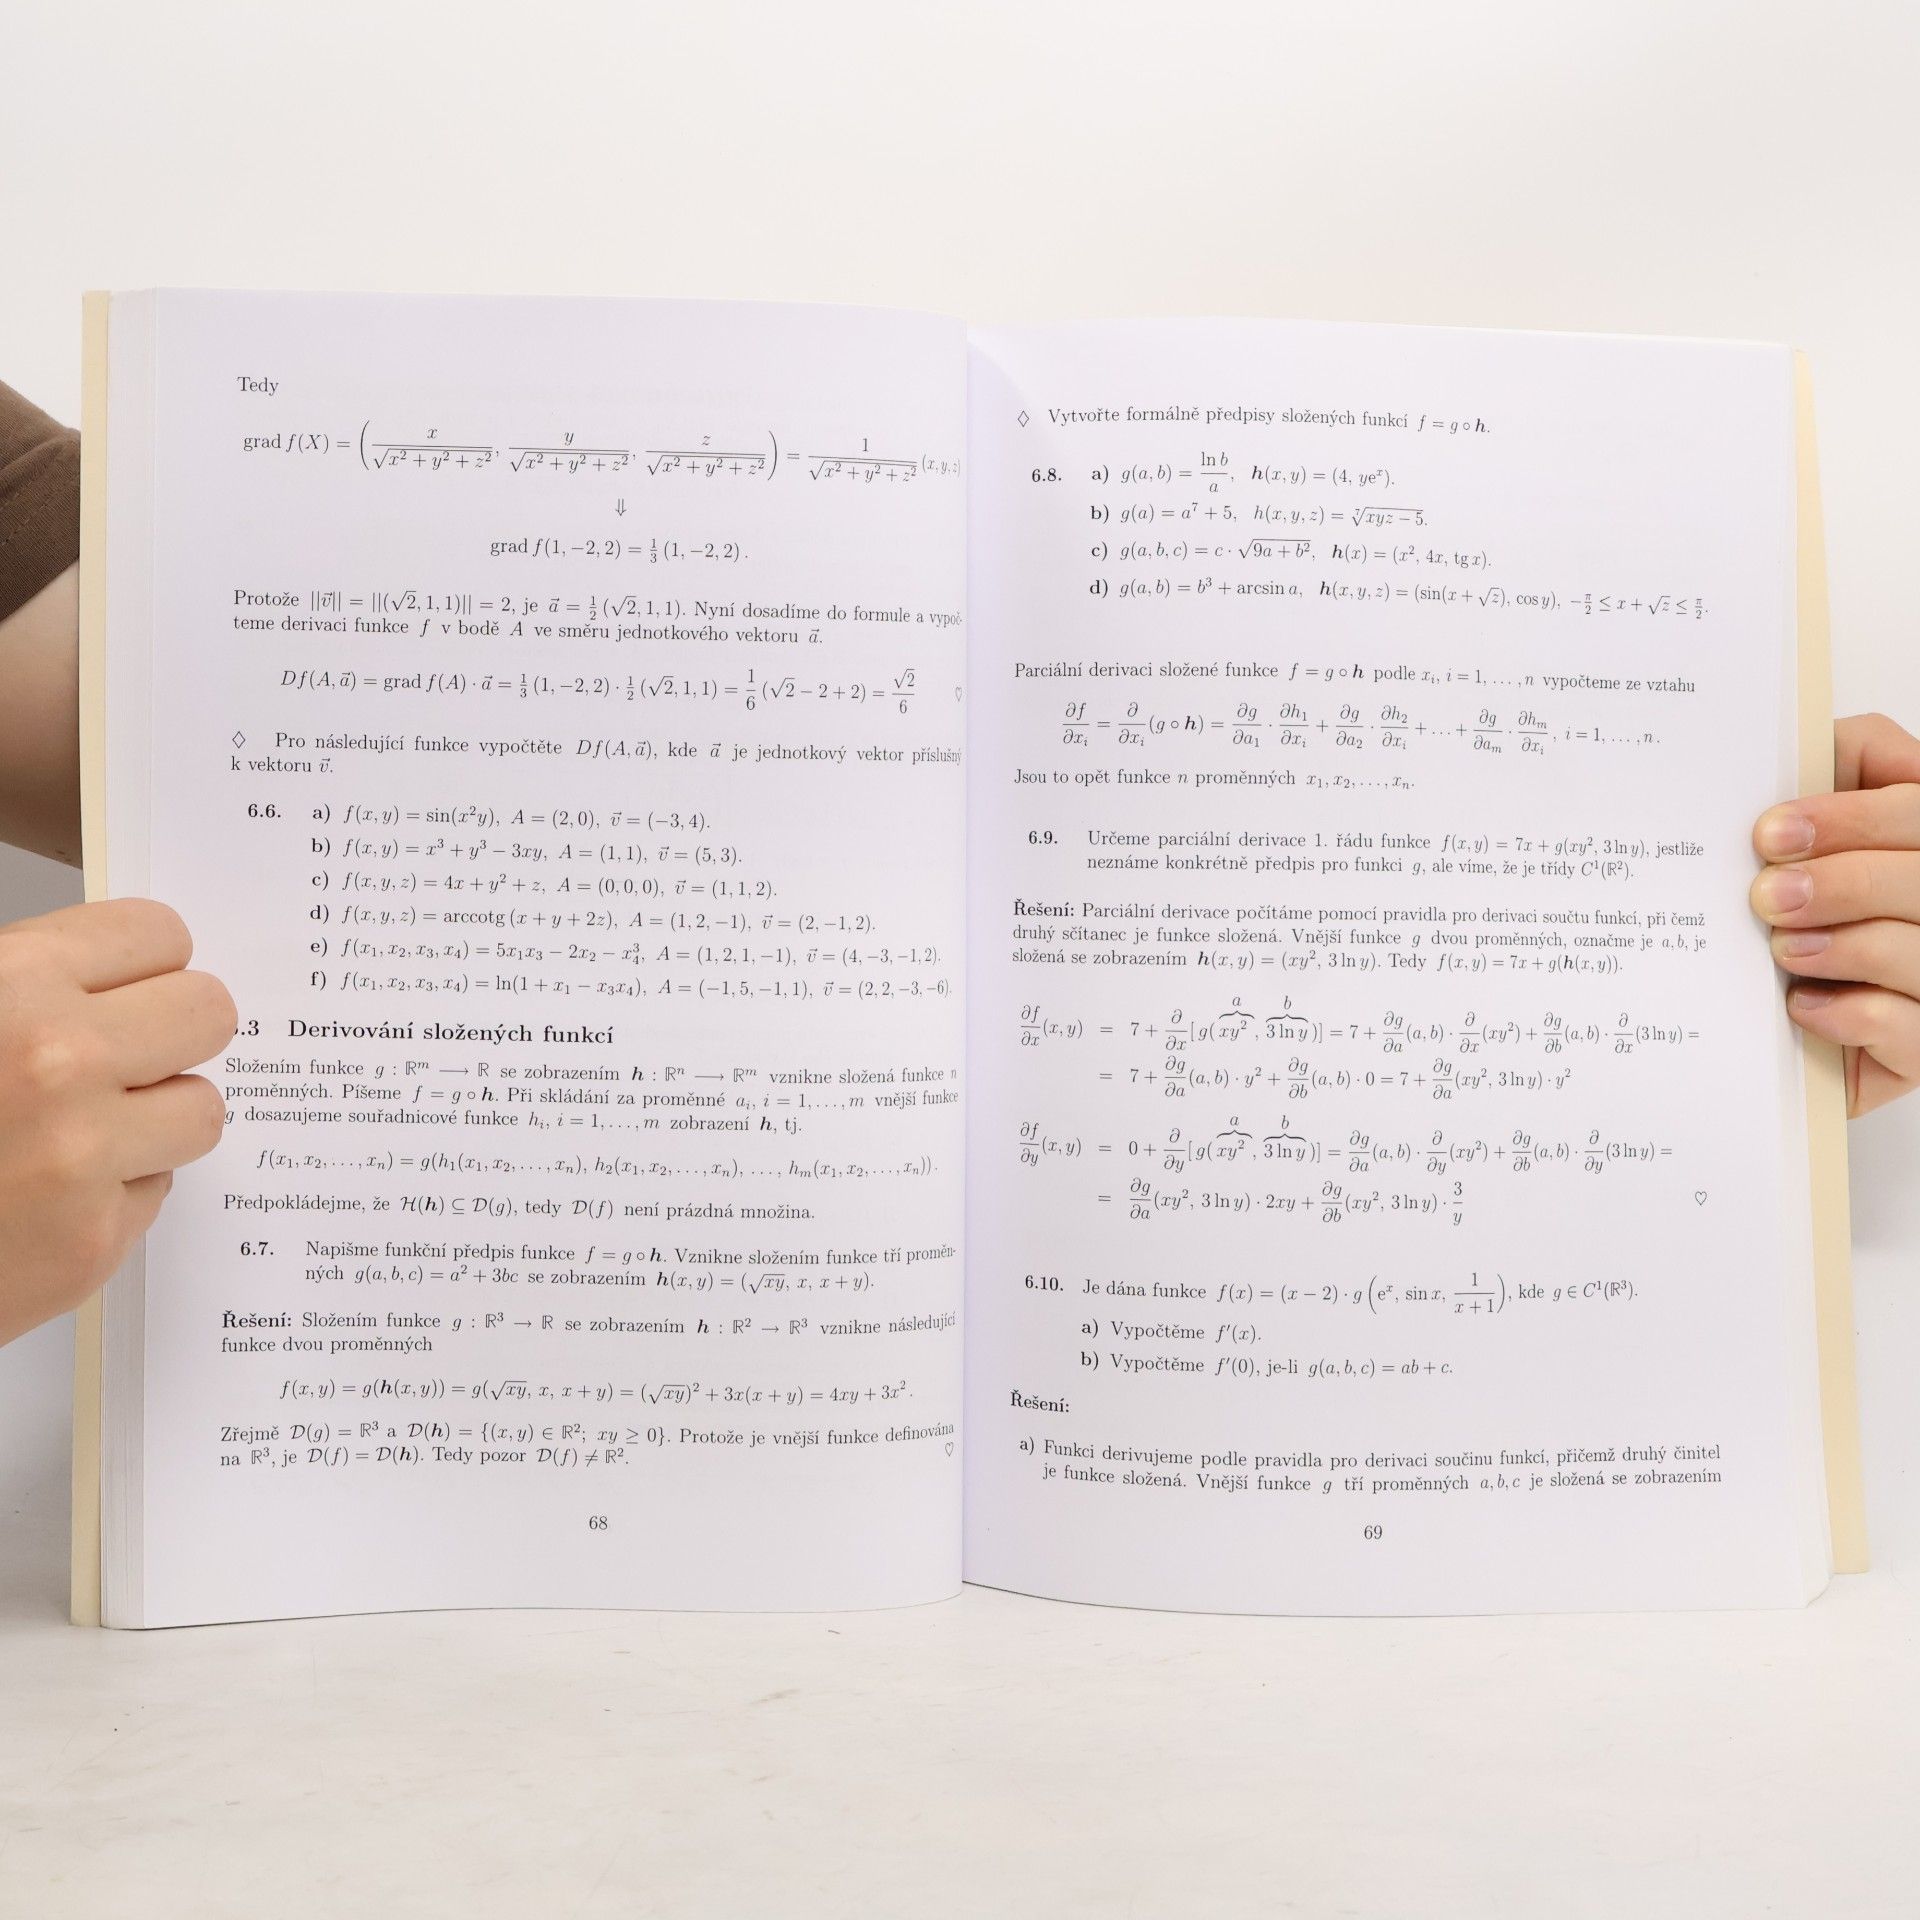 Tedy
grad f(X) = ( x/√(x² + y² + z²), y/√(x² + y² + z²), z/√(x² + y² + z²) ) = 1/√(x² + y² + z²) (x, y, z)
⇓
grad f(1, −2, 2) = 1/3 (1, −2, 2) .
Protože ||v⃗|| = ||(√2, 1, 1)|| = 2, je a⃗ = 1/2 (√2, 1, 1). Nyní dosadíme do formule a vypoč-
teme derivaci funkce f v bodě A ve směru jednotkového vektoru a⃗.
Df(A, a⃗) = grad f(A) · a⃗ = 1/3 (1, −2, 2) · 1/2 (√2, 1, 1) = 1/6 (√2 − 2 + 2) = √2/6 ♡
♢ Pro následující funkce vypočtěte Df(A, a⃗), kde a⃗ je jednotkový vektor příslušný
k vektoru v⃗.
6.6. a) f(x, y) = sin(x²y), A = (2, 0), v⃗ = (−3, 4).
b) f(x, y) = x³ + y³ − 3xy, A = (1, 1), v⃗ = (5, 3).
c) f(x, y, z) = 4x + y² + z, A = (0, 0, 0), v⃗ = (1, 1, 2).
d) f(x, y, z) = arccotg (x + y + 2z), A = (1, 2, −1), v⃗ = (2, −1, 2).
e) f(x₁, x₂, x₃, x₄) = 5x₁x₃ − 2x₂ − x₄³, A = (1, 2, 1, −1), v⃗ = (4, −3, −1, 2).
f) f(x₁, x₂, x₃, x₄) = ln(1 + x₁ − x₃x₄), A = (−1, 5, −1, 1), v⃗ = (2, 2, −3, −6).
.3 Derivování složených funkcí
Složením funkce g : ℝᵐ ⟶ ℝ se zobrazením h : ℝⁿ ⟶ ℝᵐ vznikne složená funkce n
proměnných. Píšeme f = g ∘ h. Při skládání za proměnné aᵢ, i = 1, . . . , m vnější funkce
g dosazujeme souřadnicové funkce hᵢ, i = 1, . . . , m zobrazení h, tj.
f(x₁, x₂, . . . , xₙ) = g(h₁(x₁, x₂, . . . , xₙ), h₂(x₁, x₂, . . . , xₙ), . . . , hₘ(x₁, x₂, . . . , xₙ)) .
Předpokládejme, že ℋ(h) ⊆ 𝒟(g), tedy 𝒟(f) není prázdná množina.
6.7. Napišme funkční předpis funkce f = g ∘ h. Vznikne složením funkce tří proměn-
ných g(a, b, c) = a² + 3bc se zobrazením h(x, y) = (√xy, x, x + y).
Řešení: Složením funkce g : ℝ³ → ℝ se zobrazením h : ℝ² → ℝ³ vznikne následující
funkce dvou proměnných
f(x, y) = g(h(x, y)) = g(√xy, x, x + y) = (√xy)² + 3x(x + y) = 4xy + 3x² .
Zřejmě 𝒟(g) = ℝ³ a 𝒟(h) = {(x, y) ∈ ℝ²; xy ≥ 0}. Protože je vnější funkce definována
na ℝ³, je 𝒟(f) = 𝒟(h). Tedy pozor 𝒟(f) ≠ ℝ². ♡
68
♢ Vytvořte formálně předpisy složených funkcí f = g ∘ h.
6.8. a) g(a, b) = ln b/a, h(x, y) = (4, yeˣ).
b) g(a) = a⁷ + 5, h(x, y, z) = ⁷√(xyz − 5).
c) g(a, b, c) = c · √(9a + b²), h(x) = (x², 4x, tg x).
d) g(a, b) = b³ + arcsin a, h(x, y, z) = (sin(x + √z), cos y), −π/2 ≤ x + √z ≤ π/2.
Parciální derivaci složené funkce f = g ∘ h podle xᵢ, i = 1, . . . , n vypočteme ze vztahu
∂f/∂xᵢ = ∂/∂xᵢ (g ∘ h) = ∂g/∂a₁ · ∂h₁/∂xᵢ + ∂g/∂a₂ · ∂h₂/∂xᵢ + . . . + ∂g/∂aₘ · ∂hₘ/∂xᵢ , i = 1, . . . , n .
Jsou to opět funkce n proměnných x₁, x₂, . . . , xₙ.
6.9. Určeme parciální derivace 1. řádu funkce f(x, y) = 7x + g(xy², 3 ln y), jestliže
neznáme konkrétně předpis pro funkci g, ale víme, že je třídy C¹(ℝ²).
Řešení: Parciální derivace počítáme pomocí pravidla pro derivaci součtu funkcí, při čemž
druhý sčítanec je funkce složená. Vnější funkce g dvou proměnných, označme je a, b, je
složená se zobrazením h(x, y) = (xy², 3 ln y). Tedy f(x, y) = 7x + g(h(x, y)).
a b
∂f/∂x (x, y) = 7 + ∂/∂x [ g( xy² , 3 ln y )] = 7 + ∂g/∂a (a, b) · ∂/∂x (xy²) + ∂g/∂b (a, b) · ∂/∂x (3 ln y) =
= 7 + ∂g/∂a (a, b) · y² + ∂g/∂b (a, b) · 0 = 7 + ∂g/∂a (xy², 3 ln y) · y²
a b
∂f/∂y (x, y) = 0 + ∂/∂y [ g( xy² , 3 ln y )] = ∂g/∂a (a, b) · ∂/∂y (xy²) + ∂g/∂b (a, b) · ∂/∂y (3 ln y) =
= ∂g/∂a (xy², 3 ln y) · 2xy + ∂g/∂b (xy², 3 ln y) · 3/y ♡
6.10. Je dána funkce f(x) = (x − 2) · g (eˣ, sin x, 1/(x + 1)), kde g ∈ C¹(ℝ³).
a) Vypočtěme f′(x).
b) Vypočtěme f′(0), je-li g(a, b, c) = ab + c.
Řešení:
a) Funkci derivujeme podle pravidla pro derivaci součinu funkcí, přičemž druhý činitel
je funkce složená. Vnější funkce g tří proměnných a, b, c je složená se zobrazením
69